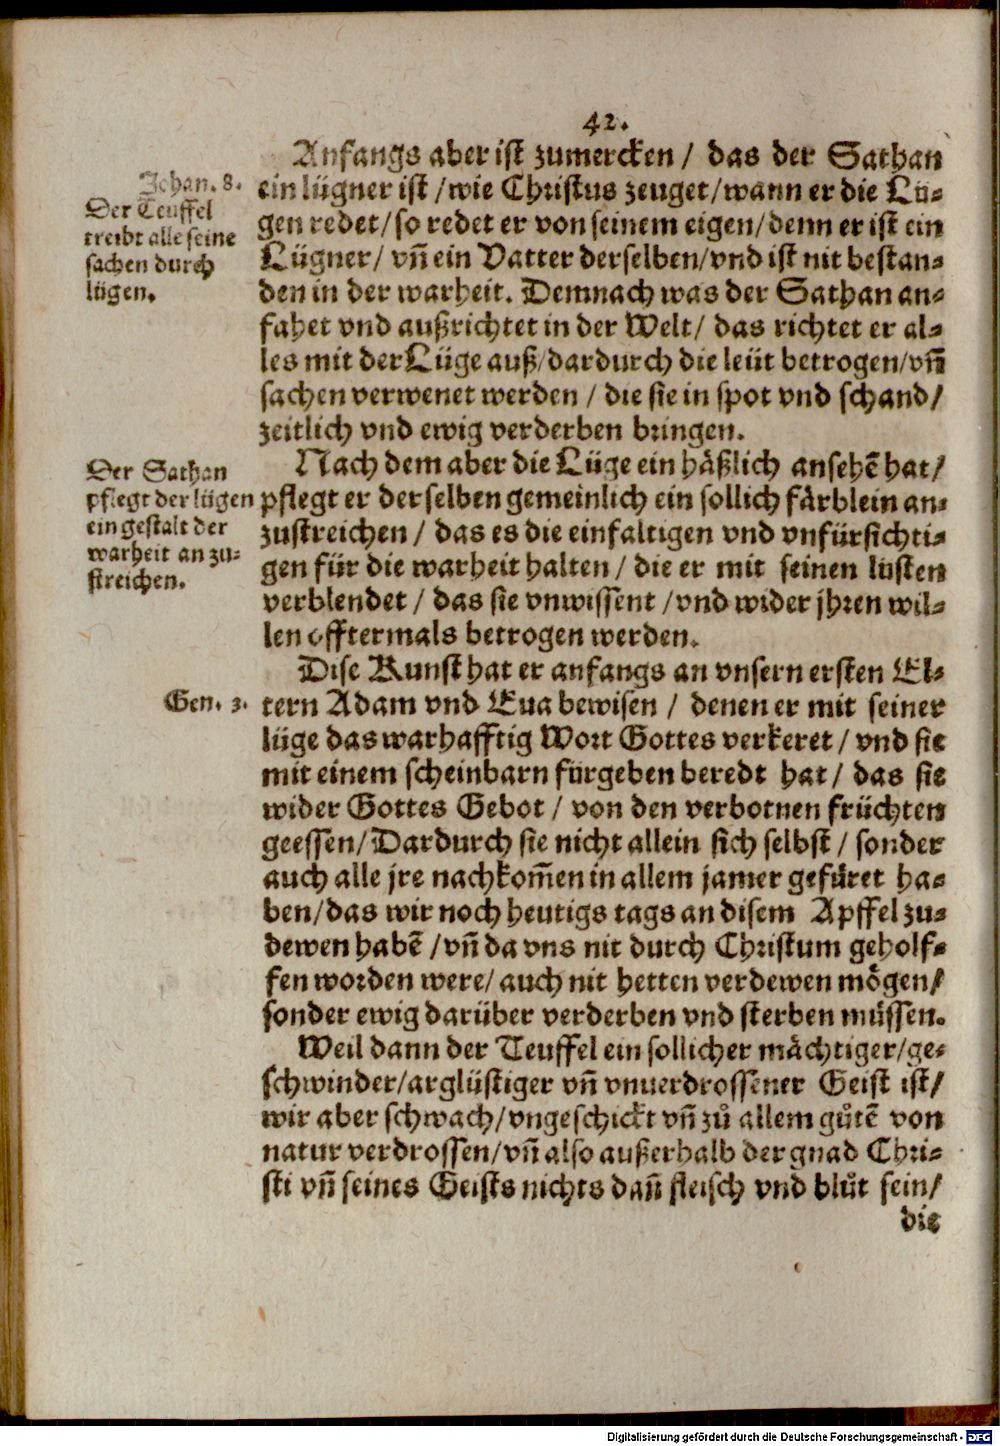 42.
Anfangs aber ist zumercken / das der Sathan
ein lügner ist / wie Christus zeuget / wann er die Lü-
gen redet / so redet er von seinem eigen / denn er ist ein
Lügner / vñ ein Vatter derselben / vnd ist nit bestan-
den in der warheit. Demnach was der Sathan an-
fahet vnd außrichtet in der Welt / das richtet er al-
les mit der Lüge auß / dardurch die leüt betrogen / vñ
sachen verwenet werden / die sie in spot vnd schand /
zeitlich vnd ewig verderben bringen.
Johan. 8.
Der Teuffel
treibt alle seine
sachen durch
lügen.
Nach dem aber die Lüge ein häßlich ansehẽ hat /
pflegt er derselben gemeinlich ein sollich färblein an-
zustreichen / das es die einfaltigen vnd vnfürsichti-
gen für die warheit halten / die er mit seinen lüsten
verblendet / das sie vnwissent / vnd wider jhren wil-
len offtermals betrogen werden.
Der Sathan
pflegt der lügen
ein gestalt der
warheit an zu-
streichen.
Dise Kunst hat er anfangs an vnsern ersten El-
tern Adam vnd Eua bewisen / denen er mit seiner
lüge das warhafftig Wort Gottes verkeret / vnd sie
mit einem scheinbarn fürgeben beredt hat / das sie
wider Gottes Gebot / von den verbotnen früchten
geessen / Dardurch sie nicht allein sich selbst / sonder
auch alle jre nachkom̃en in allem jamer gefüret ha-
ben / das wir noch heutigs tags an disem Apffel zu-
dewen habẽ / vñ da vns nit durch Christum geholf-
fen worden were / auch nit hetten verdewen mögen /
sonder ewig darüber verderben vnd sterben müssen.
Gen. 3.
Weil dann der Teuffel ein sollicher mächtiger / ge-
schwinder / arglüstiger vñ vnuerdrossener Geist ist /
wir aber schwach / vngeschickt vñ zů allem gůtẽ von
natur verdrossen / vñ also außerhalb der gnad Chri-
sti vñ seines Geists nichts dañ fleisch vnd blůt sein /
die
Digitalisierung gefördert durch die Deutsche Forschungsgemeinschaft - DFG